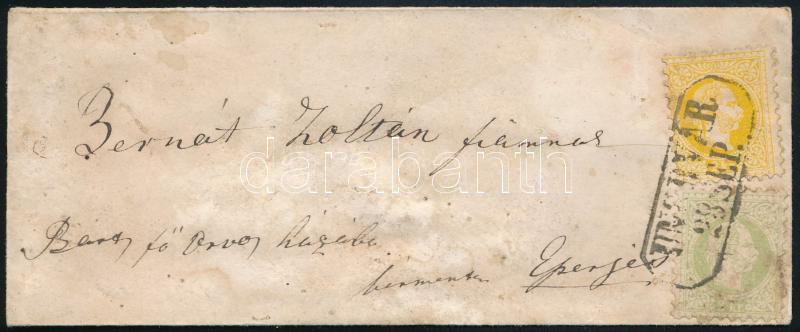 Bernát Zoltán fiamnak
Bartz fő orvos házába
bérmentve Eperjes
28 SEP.
darabanth